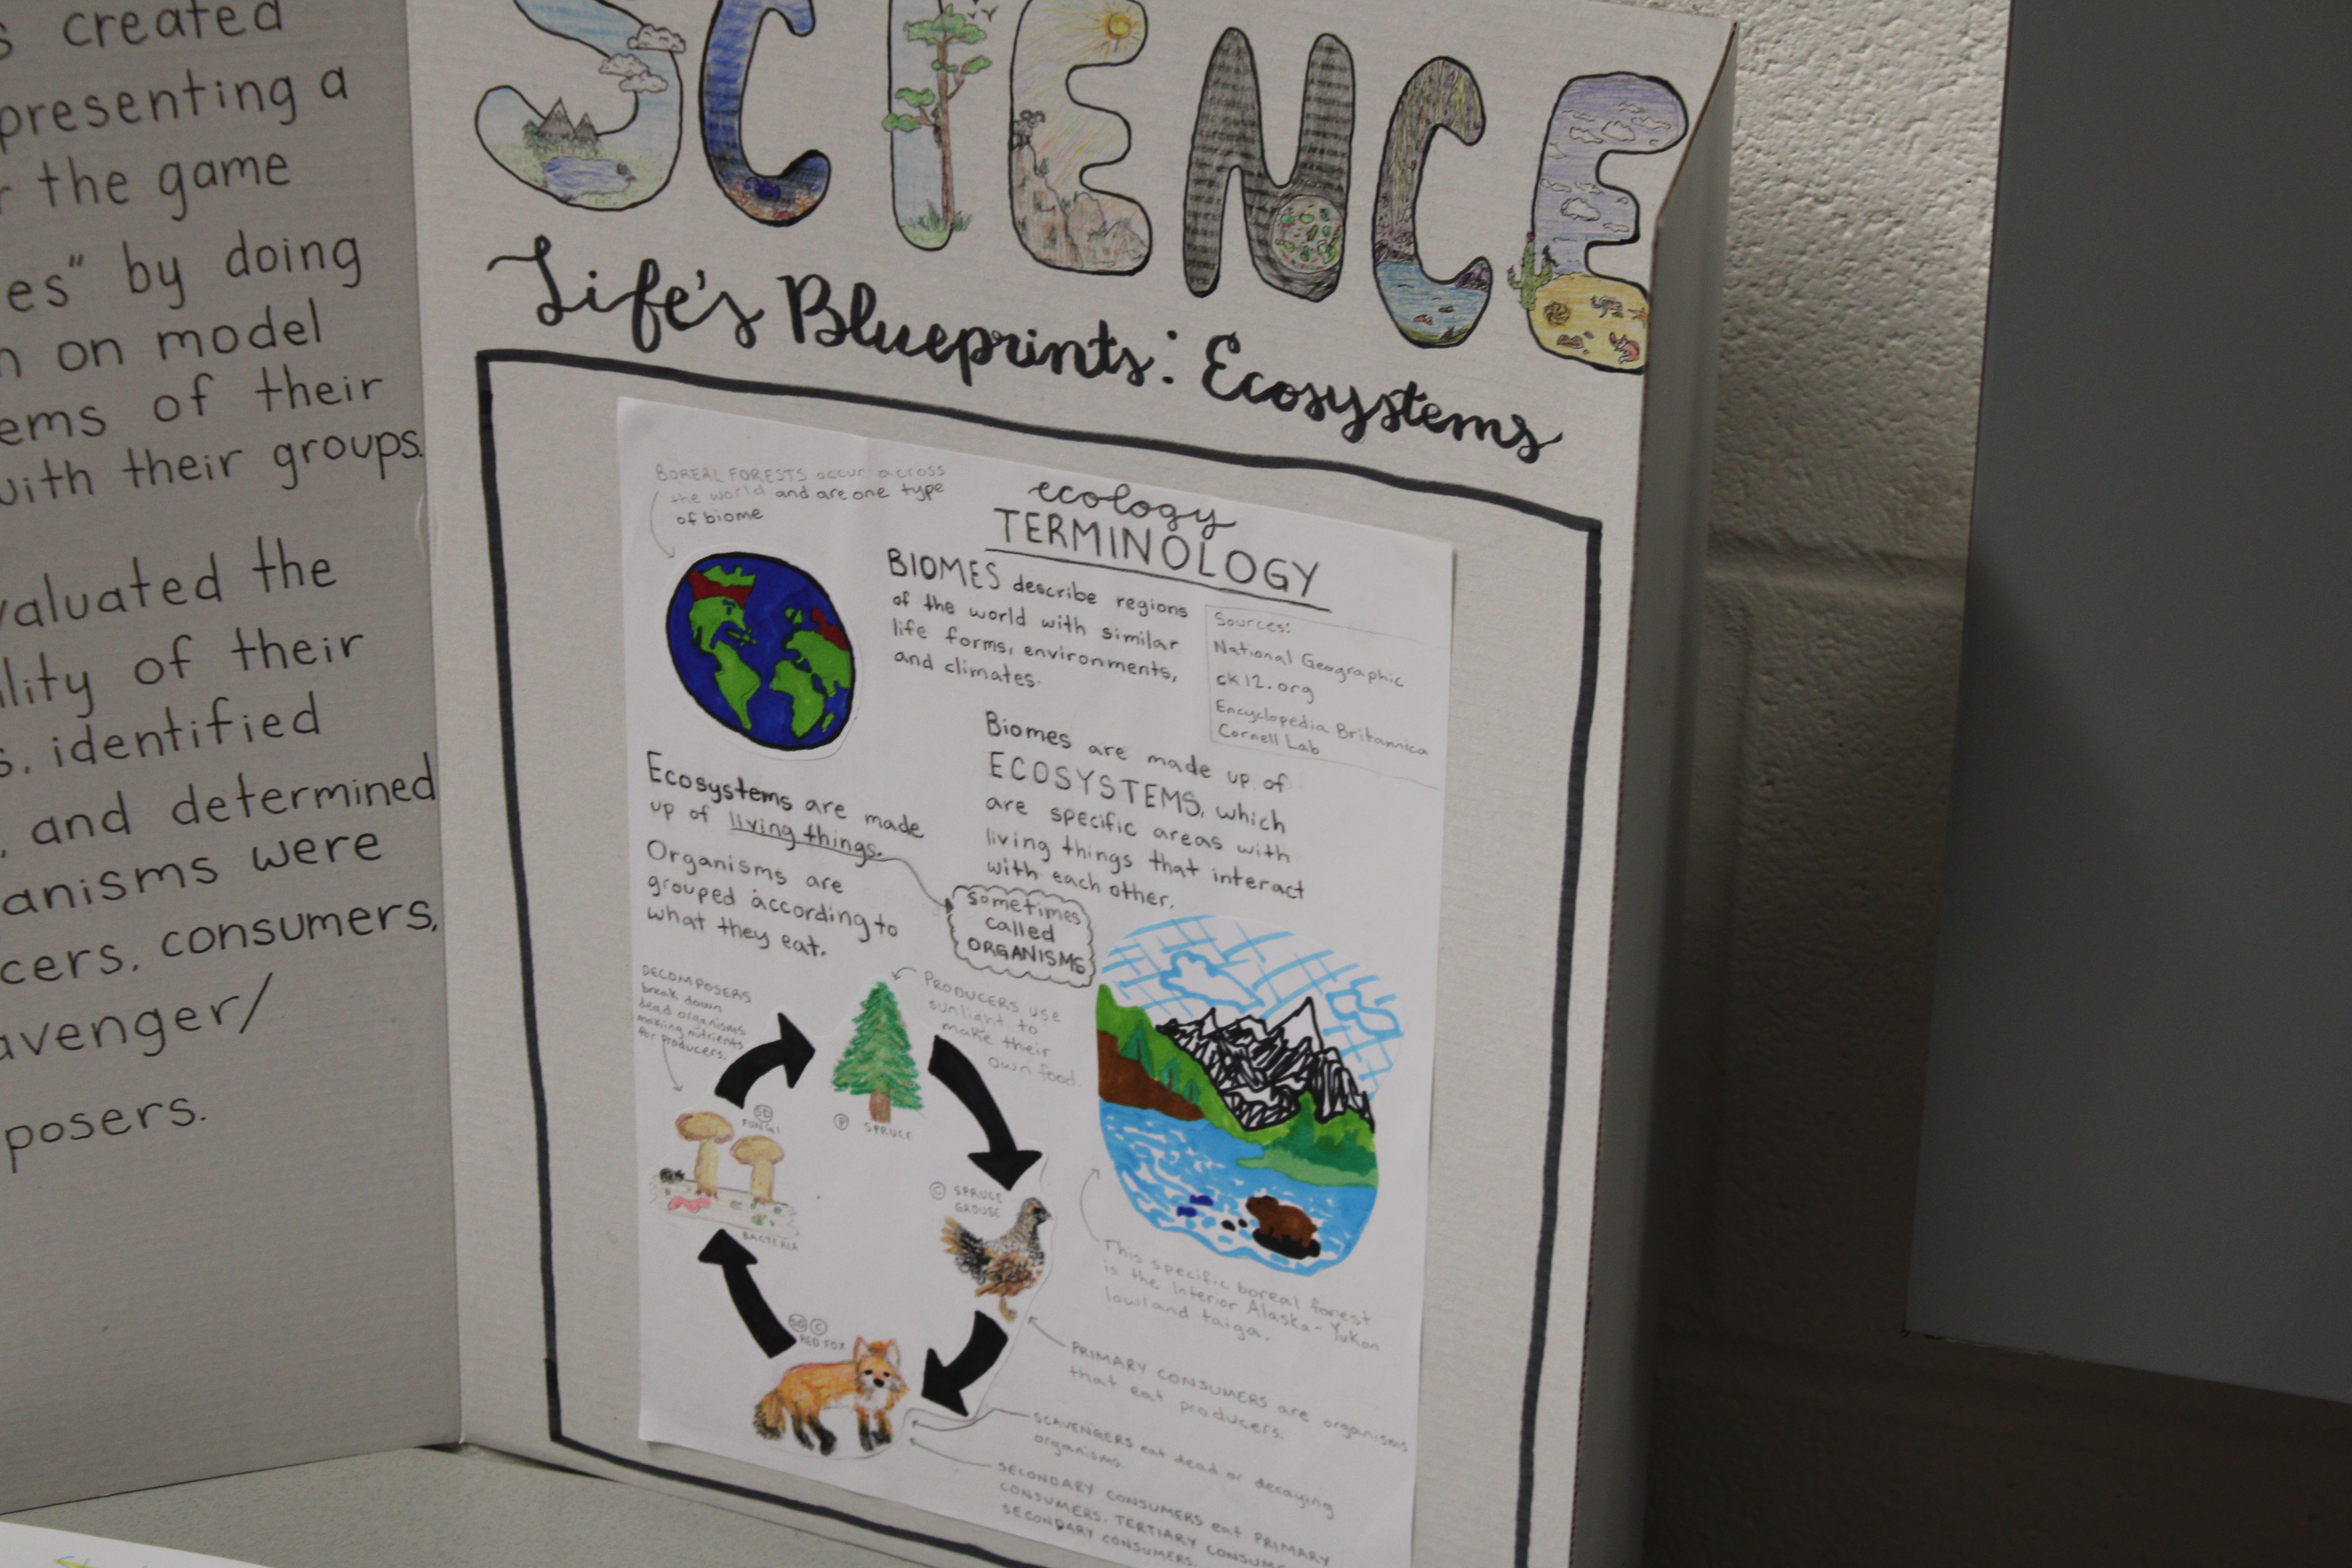 created
presenting a
the game
es" by doing
on model
ems of their
with their groups.
valuated the
lity of their
s, identified
, and determined
anisms were
cers, consumers,
avenger/
posers.
SCIENCE
Life's Blueprints: Ecosystems
BOREAL FORESTS occur across
the world and are one type
of biome
ecology
TERMINOLOGY
BIOMES describe regions
of the world with similar
life forms, environments,
and climates.
Sources:
National Geographic
ck12.org
Encyclopedia Britannica
Cornell Lab
Biomes are made up of
ECOSYSTEMS, which
are specific areas with
living things that interact
with each other.
Ecosystems are made
up of living things.
sometimes
called
ORGANISMS
Organisms are
grouped according to
what they eat.
DECOMPOSERS
break down
dead organisms
making nutrients
for producers.
PRODUCERS use
sunlight to
make their
own food.
P SPRUCE
SD
FUNGI
BACTERIA
C SPRUCE
GROUSE
C
RED FOX
This specific boreal forest
is the Interior Alaska-Yukon
lowland taiga.
PRIMARY CONSUMERS are organisms
that eat producers.
SCAVENGERS eat dead or decaying
organisms.
SECONDARY CONSUMERS eat PRIMARY
CONSUMERS. TERTIARY CONSUME
SECONDARY CONSUMERS.